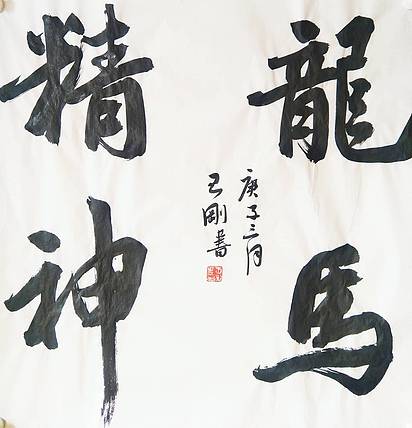 龍馬
精神
庚子三月
剛書